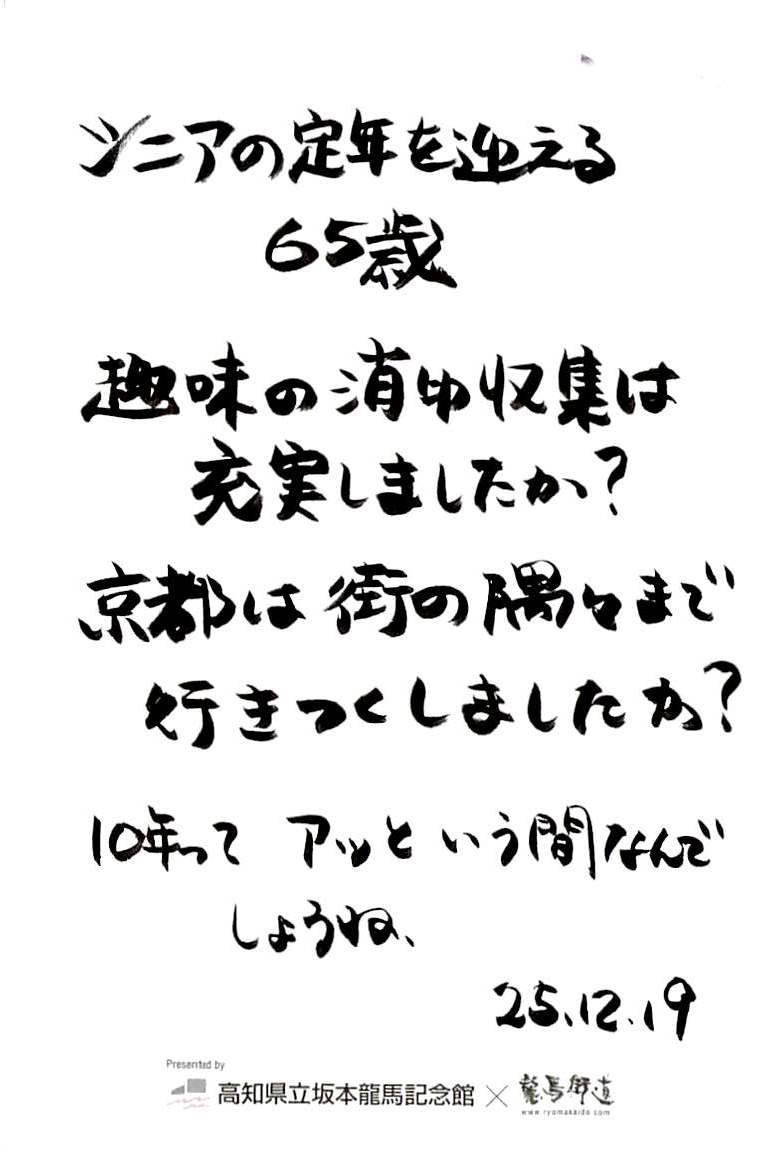 シニアの定年を迎える
65歳
趣味の消印収集は
充実しましたか?
京都は街の隅々まで
行きつくしましたか?
10年って アッという間なんで
しょうね、
25.12.19
Presented by
高知県立坂本龍馬記念館 × 龍馬街道
www.ryomakaido.com